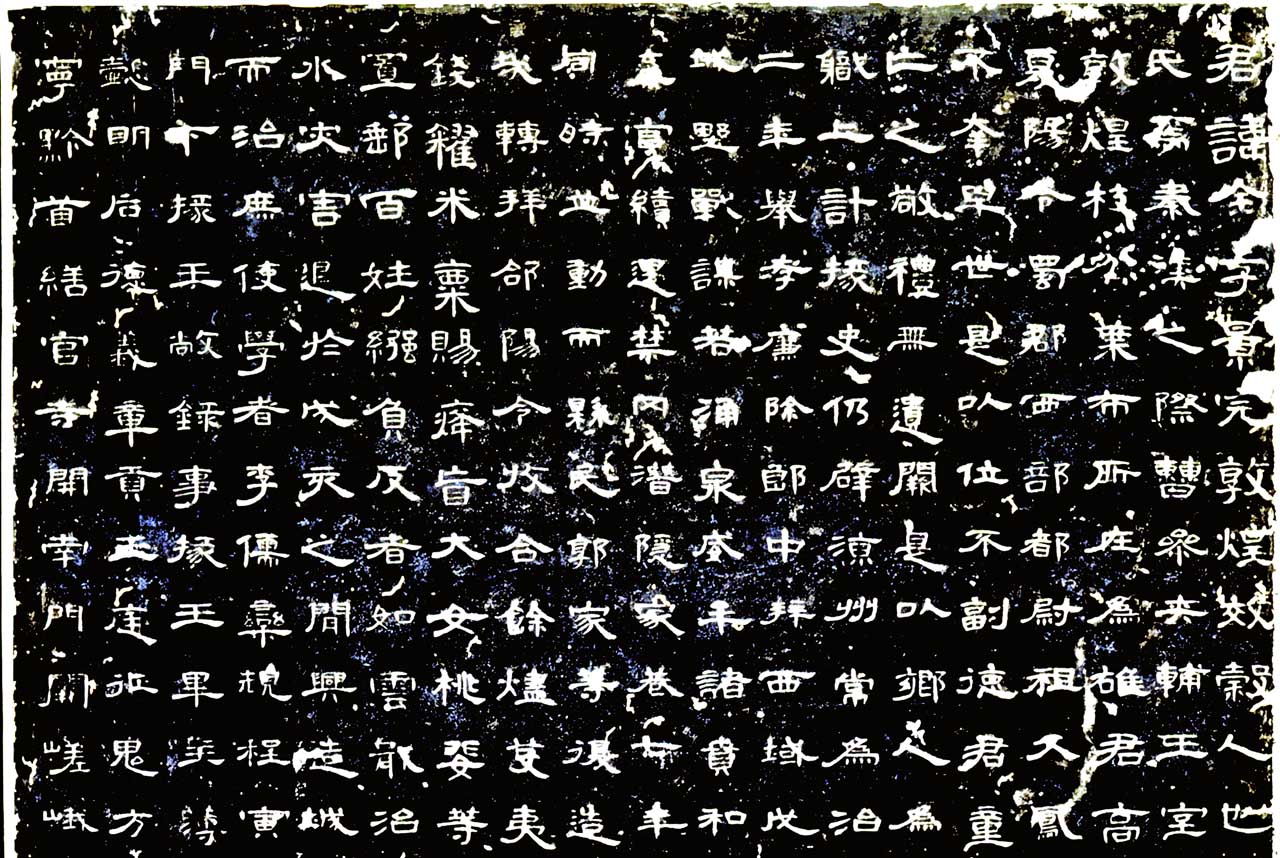 君諱全字景完敦煌效穀人也
氏焉秦漢之際曹參夾輔王室
敦煌枝分葉布所在為雄君高
夏陽令蜀郡西部都尉祖父鳳
不幸早世是以位不副德君童
亡之敬禮無遺闕是以鄉人為
職上計掾史仍辟涼州常為治
二年舉孝廉除郎中拜西域戊
城野戰謀若涌泉威牟諸賁和
棄官續遇禁冈潛隱家巷七年
同時並動而縣民郭家等復造
哉轉拜郃陽令收合餘燼芟夷
錢糴米粟賜癃盲大女桃婓等
置郵百姓繈負反者如雲戢治
水灾害退於戊亥之間興造城
而治庶使學者李儒欒規程寅
門下掾王敞錄事掾王畢主簿
懿明后德義章貢王庭征鬼方
寧黔首繕官寺開南門闕嵯峨